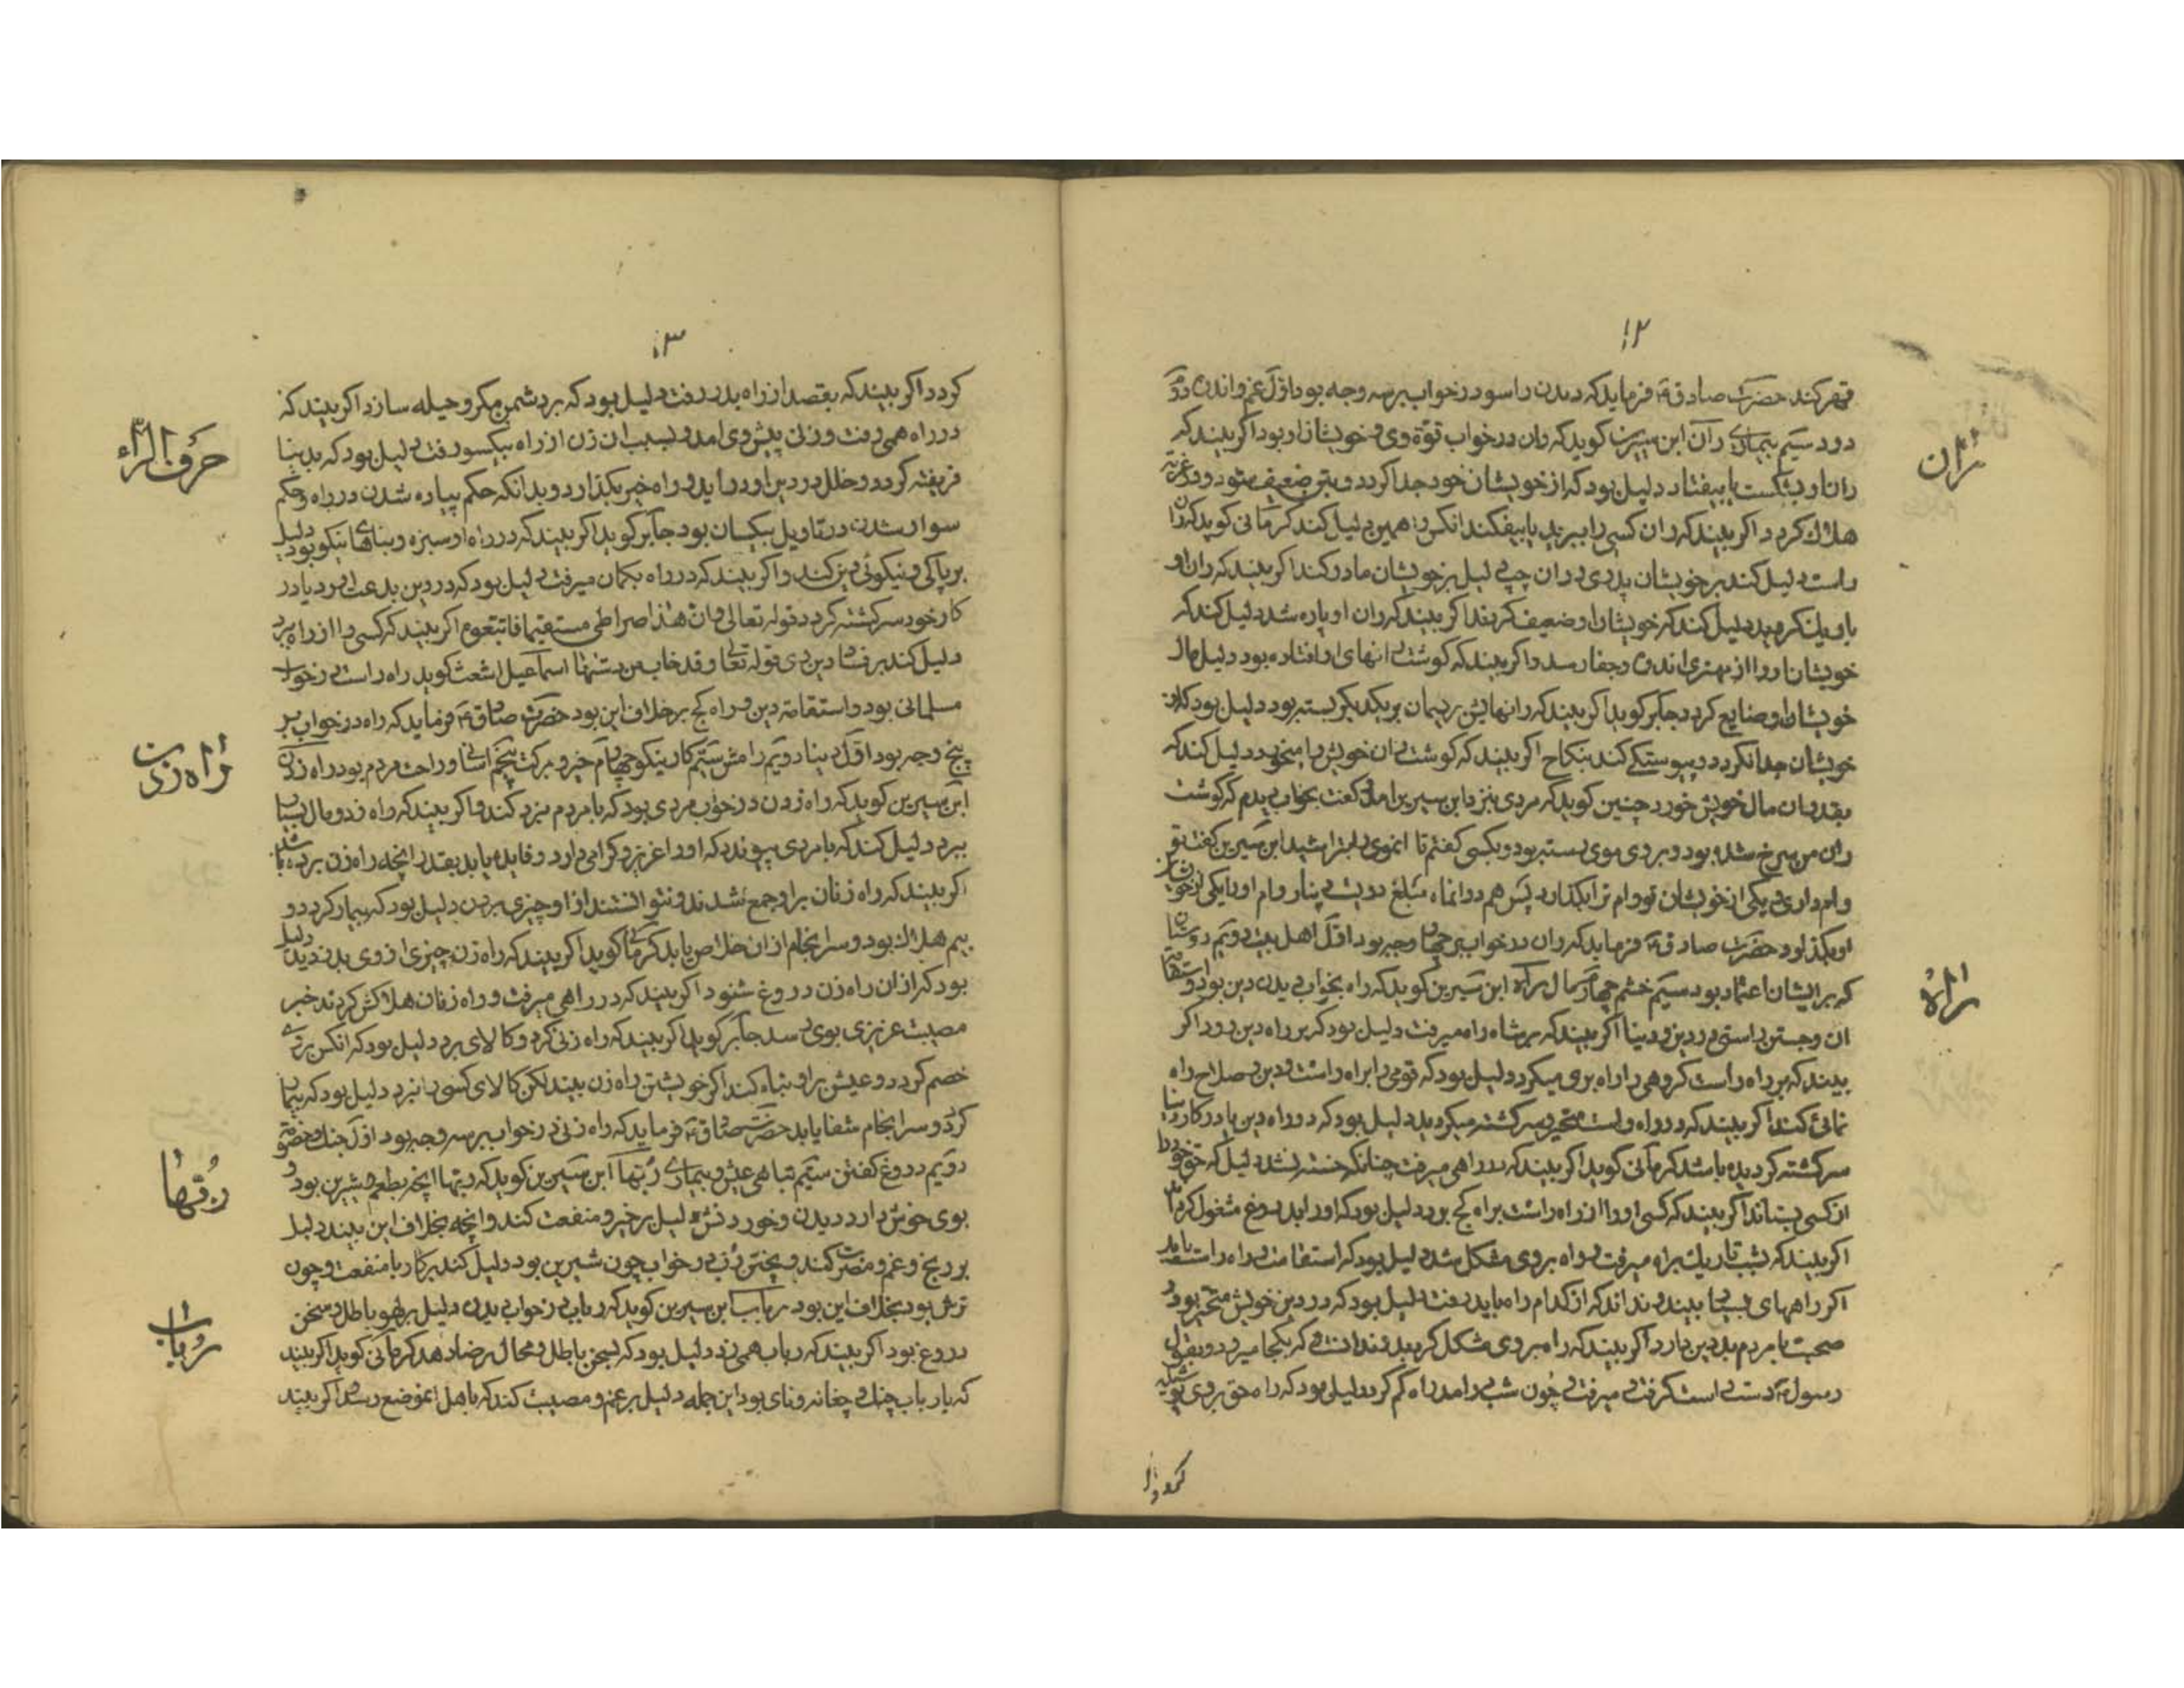 ۱۲
قهر کند حضرت صادق فرماید که دیدن راسو در خواب بر سه وجه بود اول غم و اندوه دوم
درد سیم بیماری ران ابن سیرین کوید که ران در خواب قوة وی و خویشان او بود اکر بیند که
ران او بشکست یا بیفتاد دلیل بود که از خویشان خود جدا کردد و بتن ضعیف شود و در غربت
هلاک کردد اکر بیند که ران کسی را ببرید یا بیفکند انکس را همین دلیل کند کرمانی کوید که ران
راست دلیل کند بر خویشان پدری و ران چپ دلیل بر خویشان مادر کند اکر بیند که ران او
باریک کردید دلیل کند که خویشان او ضعیف کردند اکر بیند که ران او پاره شد دلیل کند که
خویشان او را از مهتری اندوه و جفا رسد و اکر بیند که کوشت رانهای او افتاده بود دلیل مال
خویشان او ضایع کردد جابر کوید اکر بیند که رانهایش بریسمان بر یکدیکر بسته بود دلیل بود که از
خویشان جدا نکردد و پیوستکی کند بنکاح اکر بیند که کوشت ران خویش را میخورد دلیل کند که
بقدر ان مال خویش خورد چنین کوید که مردی بنزد ابن سیرین امد و کفت بخواب دیدم که کوشت
ران من سرخ شده بود و بر وی موی رسته بود و بکسی کفتم تا انموی را بتراشید ابن سیرین کفت تو
وام داری و یکی از خویشان تو وام ترا بکذارد پس هم در انماه مبلغ دویست دینار وام او را یکی از خویشان
او بکذارد حضرت صادق فرماید که ران در خواب بر چهار وجه بود اول اهل بیت دویم دوستان
که بر ایشان اعتماد بود سیم خشم چهارم مال راه ابن سیرین کوید که راه بخواب دیدن دین بود و استقامت
ان و جستن راستی در دین و دنیا اکر بیند که بر شاه راه میرفت دلیل بود که بر راه دین رود اکر
بیند که بر راه راست کروهی را راه بری میکرد دلیل بود که قومی را براه راست و دین و صلاح راه
نمائی کند اکر بیند که در راه راست متحیر و سرکشته میکردید دلیل بود که در راه دین یا در کار دنیا
سرکشته کردیده باشد کرمانی کوید اکر بیند که در راهی میرفت چنانکه خسته نشد دلیل که حق خود را
از کسی بستاند اکر بیند که کسی او را از راه راست براه کج برد دلیل بود که او را بدروغ مشغول کردد
اکر بیند که بشب تاریک براه میرفت و راه بر وی مشکل شد دلیل بود که استقامت راه راست یابد
اکر راههای بسیار بیند و نداند که از کدام راه باید رفت دلیل بود که در دین خویش متحیر بود و
صحبت با مردم بد دین دارد اکر بیند که راه بر وی مشکل کردید و ندانست که بکجا میرود و بقول
رسول دست راست کرفت و میرفت و چون شب در امد راه کم کرد دلیل بود که راه حق بر وی پوشیده
ران
راه
۱۳
کردد اکر بیند که بقصد از راه بدر رفت دلیل بود که بر دشمن مکر و حیله سازد اکر بیند که
در راه همی رفت و زنی پیش وی امد و بسبب ان زن از راه بیکسو رفت دلیل بود که بدنیا
فریفته کردد و خلل در دین او در اید و راه خیر بکذارد و بدانکه حکم پیاده شدن در راه و حکم
سوار شدن در تاویل یکسان بود جابر کوید اکر بیند که در راه او سبزه و بناهای نیکو بود دلیل
بر پاکی و نیکوئی دین کند و اکر بیند که در راه بکمان میرفت دلیل بود که در دین بدعت اورد یا در
کار خود سرکشته کردد قوله تعالی وان هذا صراطی مستقیما فاتبعوه اکر بیند که کسی را از راه برد
دلیل کند بر فساد دین وی قوله تعالی و قد خاب من دسیها اسماعیل اشعث کوید راه راست در خواب
مسلمانی بود و استقامة دین و راه کج بر خلاف این بود حضرت صادق فرماید که راه در خواب بر
پنج وجه بود اول دنیا دویم رامش سیم کار نیکو چهارم خیر و برکت پنجم اسانی و راحت مردم بود راه زدن
ابن سیرین کوید که راه زدن در خواب مردی بود که با مردم نبرد کند و اکر بیند که راه زد و مال بسیار
ببرد دلیل کند که با مردی پیوندد که او را عزیز و کرامی دارد و فایده یابد بقدر انچه راه زن برده باشد
اکر بیند که راه زنان بر او جمع شدند و نتوانستند از او چیزی بردن دلیل بود که بیمار کردد و
بیم هلاک بود و سرانجام از ان خلاص یابد کرمانی کوید اکر بیند که راه زن چیزی از وی بدزدید دلیل
بود که از ان راه زن دروغ شنود اکر بیند که در راهی میرفت و راه زنان هلاکش کردند خبر
مصیبت عزیزی بوی رسد جابر کوید اکر بیند که راه زنی کرد و کالای برد دلیل بود که انکس بر وی
خصم کردد و عیش بر او تباه کند اکر خویشتن راه زن بیند لکن کالای کسی را نبرد دلیل بود که بیمار
کردد و سرانجام شفا یابد حضرت صادق فرماید که راه زنی در خواب بر سه وجه بود اول جنک و خصومة
دویم دروغ کفتن سیم تباهی عیش و بیماری ربها ابن سیرین کوید که ربها انچه بطعم شیرین بود و
بوی خوش دارد دیدن و خوردنش دلیل بر خیر و منفعت کند و انچه بخلاف این بیند دلیل
بر رنج و غم و مضرت کند و پختن رب در خواب چون شیرین بود دلیل کند بر کار با منفعت و چون
ترش بود بخلاف این بود رباب ابن سیرین کوید که رباب در خواب دیدن دلیل بر لهو باطل و سخن
دروغ بود اکر بیند که رباب همی زد دلیل بود که بسخن باطل و محال رضا دهد کرمانی کوید اکر بیند
که با رباب چنک و چغانه و نای بود این جمله دلیل بر غم و مصیبت کند که باهل انموضع رسد اکر بیند
حرف الراء
راه زدن
رباب